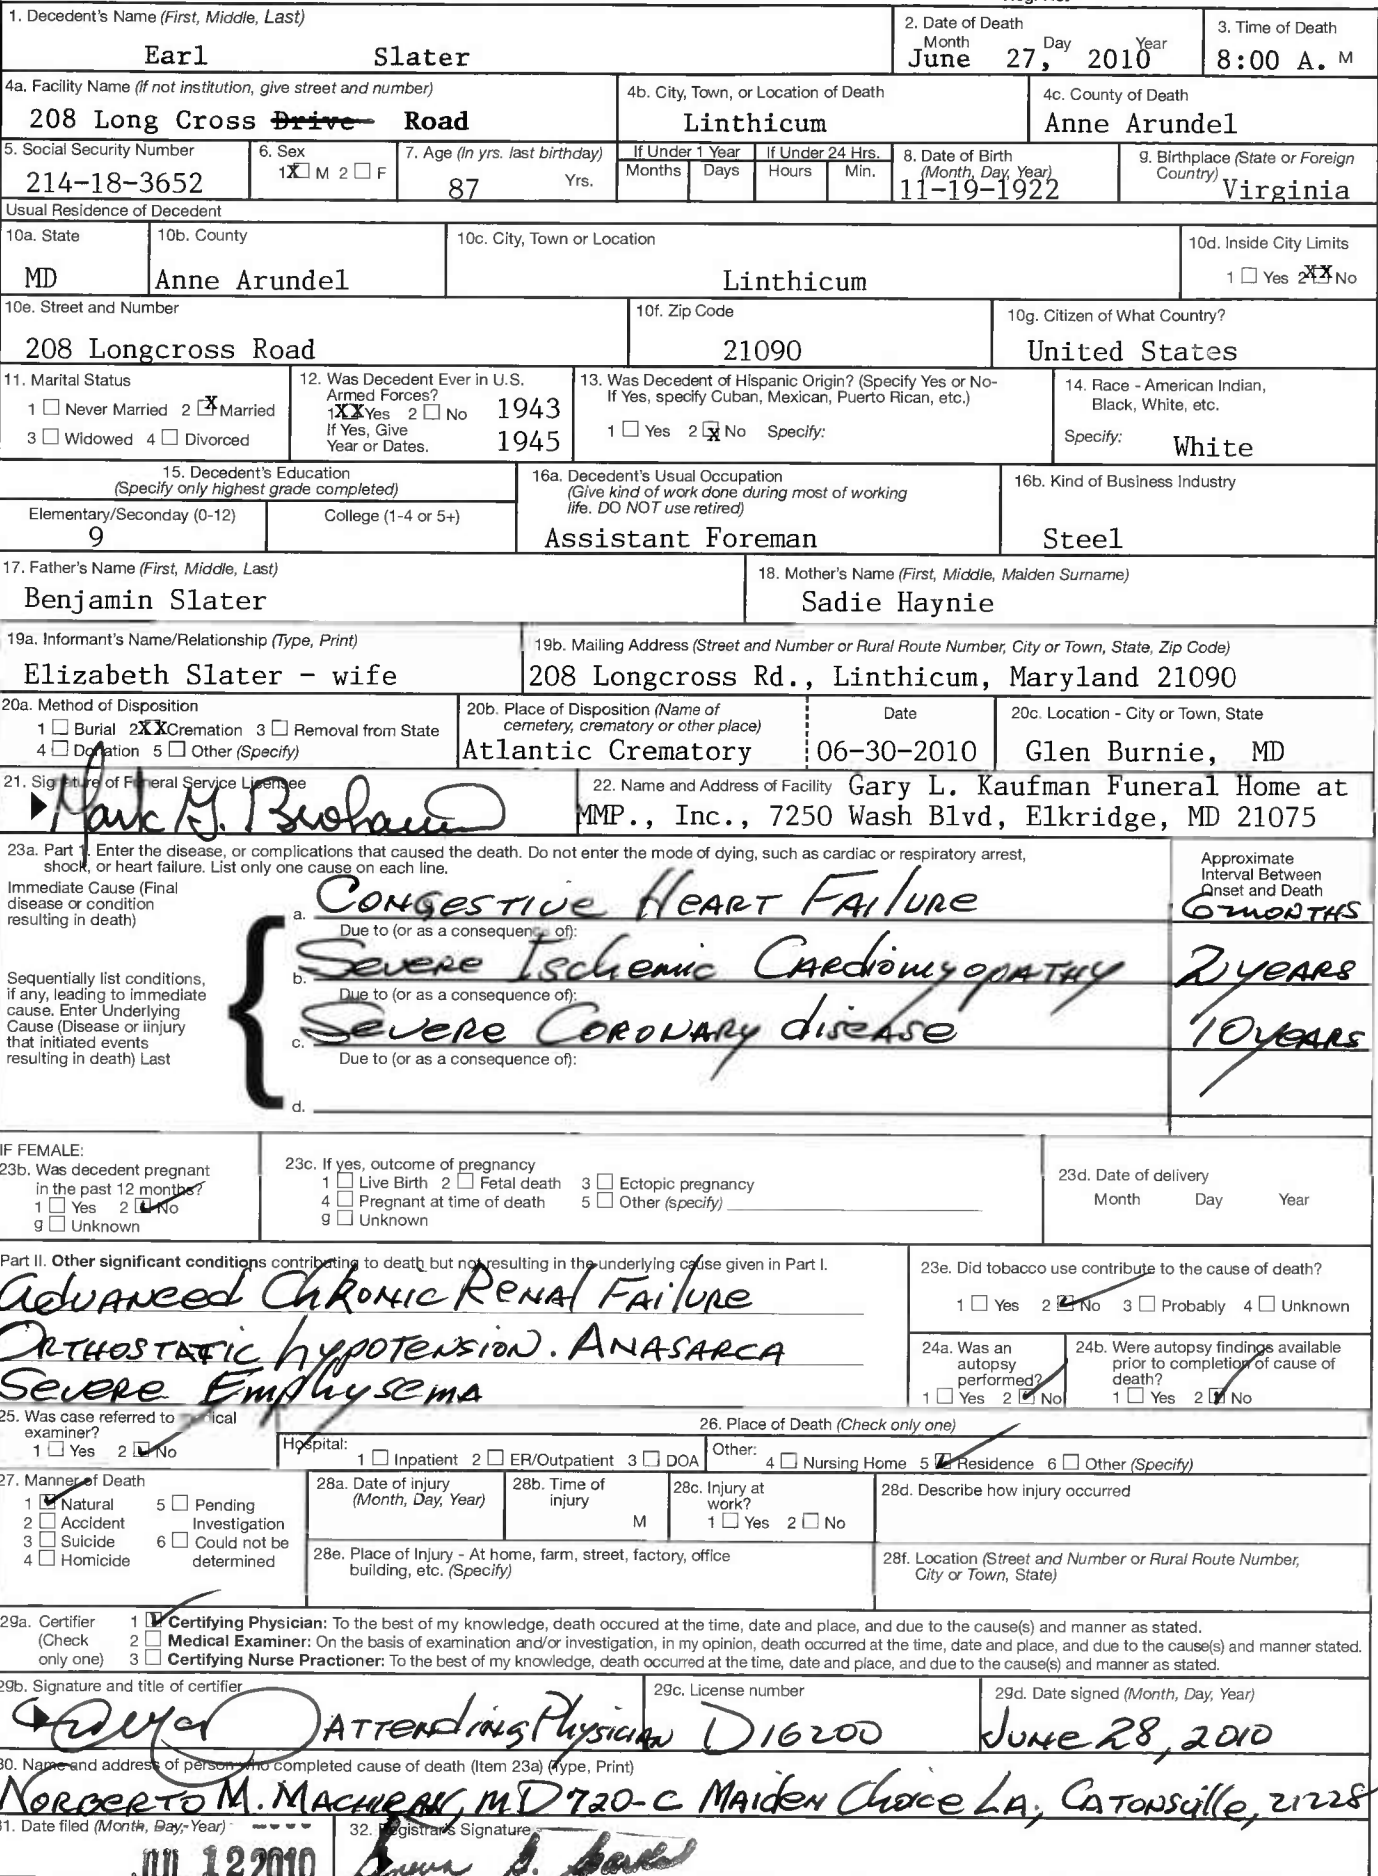 1. Decedent's Name (First, Middle, Last)
Earl Slater
2. Date of Death
Month Day Year
June 27, 2010
3. Time of Death
8:00 A. M
4a. Facility Name (if not institution, give street and number)
208 Long Cross Drive Road
4b. City, Town, or Location of Death
Linthicum
4c. County of Death
Anne Arundel
5. Social Security Number
214-18-3652
6. Sex
1 X M 2 ☐ F
7. Age (In yrs. last birthday)
87 Yrs.
If Under 1 Year
Months Days
If Under 24 Hrs.
Hours Min.
8. Date of Birth
(Month, Day, Year)
11-19-1922
9. Birthplace (State or Foreign
Country) Virginia
Usual Residence of Decedent
10a. State
MD
10b. County
Anne Arundel
10c. City, Town or Location
Linthicum
10d. Inside City Limits
1 ☐ Yes 2 XX No
10e. Street and Number
208 Longcross Road
10f. Zip Code
21090
10g. Citizen of What Country?
United States
11. Marital Status
1 ☐ Never Married 2 X Married
3 ☐ Widowed 4 ☐ Divorced
12. Was Decedent Ever in U.S.
Armed Forces?
1 XX Yes 2 ☐ No 1943
If Yes, Give
Year or Dates. 1945
13. Was Decedent of Hispanic Origin? (Specify Yes or No-
If Yes, specify Cuban, Mexican, Puerto Rican, etc.)
1 ☐ Yes 2 X No Specify:
14. Race - American Indian,
Black, White, etc.
Specify: White
15. Decedent's Education
(Specify only highest grade completed)
Elementary/Seconday (0-12) College (1-4 or 5+)
9
16a. Decedent's Usual Occupation
(Give kind of work done during most of working
life. DO NOT use retired)
Assistant Foreman
16b. Kind of Business Industry
Steel
17. Father's Name (First, Middle, Last)
Benjamin Slater
18. Mother's Name (First, Middle, Maiden Surname)
Sadie Haynie
19a. Informant's Name/Relationship (Type, Print)
Elizabeth Slater - wife
19b. Mailing Address (Street and Number or Rural Route Number, City or Town, State, Zip Code)
208 Longcross Rd., Linthicum, Maryland 21090
20a. Method of Disposition
1 ☐ Burial 2 XX Cremation 3 ☐ Removal from State
4 ☐ Donation 5 ☐ Other (Specify)
20b. Place of Disposition (Name of
cemetery, crematory or other place)
Atlantic Crematory
Date
06-30-2010
20c. Location - City or Town, State
Glen Burnie, MD
21. Signature of Funeral Service Licensee
Mark G. Brohawn
22. Name and Address of Facility Gary L. Kaufman Funeral Home at
MMP., Inc., 7250 Wash Blvd, Elkridge, MD 21075
23a. Part 1. Enter the disease, or complications that caused the death. Do not enter the mode of dying, such as cardiac or respiratory arrest,
shock, or heart failure. List only one cause on each line.
Approximate
Interval Between
Onset and Death
Immediate Cause (Final
disease or condition
resulting in death)
a. Congestive Heart Failure 6 months
Due to (or as a consequence of):
b. Severe Ischemic Cardiomyopathy 2 years
Due to (or as a consequence of):
c. Severe Coronary disease 10 years
Due to (or as a consequence of):
d.
Sequentially list conditions,
if any, leading to immediate
cause. Enter Underlying
Cause (Disease or iinjury
that initiated events
resulting in death) Last
IF FEMALE:
23b. Was decedent pregnant
in the past 12 months?
1 ☐ Yes 2 ☑ No
9 ☐ Unknown
23c. If yes, outcome of pregnancy
1 ☐ Live Birth 2 ☐ Fetal death 3 ☐ Ectopic pregnancy
4 ☐ Pregnant at time of death 5 ☐ Other (specify)
9 ☐ Unknown
23d. Date of delivery
Month Day Year
Part II. Other significant conditions contributing to death but not resulting in the underlying cause given in Part I.
Advanced Chronic Renal Failure
Orthostatic hypotension. Anasarca
Severe Emphysema
23e. Did tobacco use contribute to the cause of death?
1 ☐ Yes 2 ☑ No 3 ☐ Probably 4 ☐ Unknown
24a. Was an
autopsy
performed?
1 ☐ Yes 2 ☑ No
24b. Were autopsy findings available
prior to completion of cause of
death?
1 ☐ Yes 2 ☑ No
25. Was case referred to medical
examiner?
1 ☐ Yes 2 ☑ No
26. Place of Death (Check only one)
Hospital:
1 ☐ Inpatient 2 ☐ ER/Outpatient 3 ☐ DOA
Other:
4 ☐ Nursing Home 5 ☑ Residence 6 ☐ Other (Specify)
27. Manner of Death
1 ☑ Natural 5 ☐ Pending
2 ☐ Accident Investigation
3 ☐ Suicide 6 ☐ Could not be
4 ☐ Homicide determined
28a. Date of injury
(Month, Day, Year)
28b. Time of
injury
M
28c. Injury at
work?
1 ☐ Yes 2 ☐ No
28d. Describe how injury occurred
28e. Place of Injury - At home, farm, street, factory, office
building, etc. (Specify)
28f. Location (Street and Number or Rural Route Number,
City or Town, State)
29a. Certifier
(Check
only one)
1 ☑ Certifying Physician: To the best of my knowledge, death occured at the time, date and place, and due to the cause(s) and manner as stated.
2 ☐ Medical Examiner: On the basis of examination and/or investigation, in my opinion, death occurred at the time, date and place, and due to the cause(s) and manner stated.
3 ☐ Certifying Nurse Practioner: To the best of my knowledge, death occurred at the time, date and place, and due to the cause(s) and manner as stated.
29b. Signature and title of certifier
Attending Physician
29c. License number
D16200
29d. Date signed (Month, Day, Year)
June 28, 2010
30. Name and address of person who completed cause of death (Item 23a) (Type, Print)
Norberto M. MD 720-C Maiden Choice La, Catonsville, 21228
31. Date filed (Month, Day, Year)
12 2010
32. Registrar's Signature